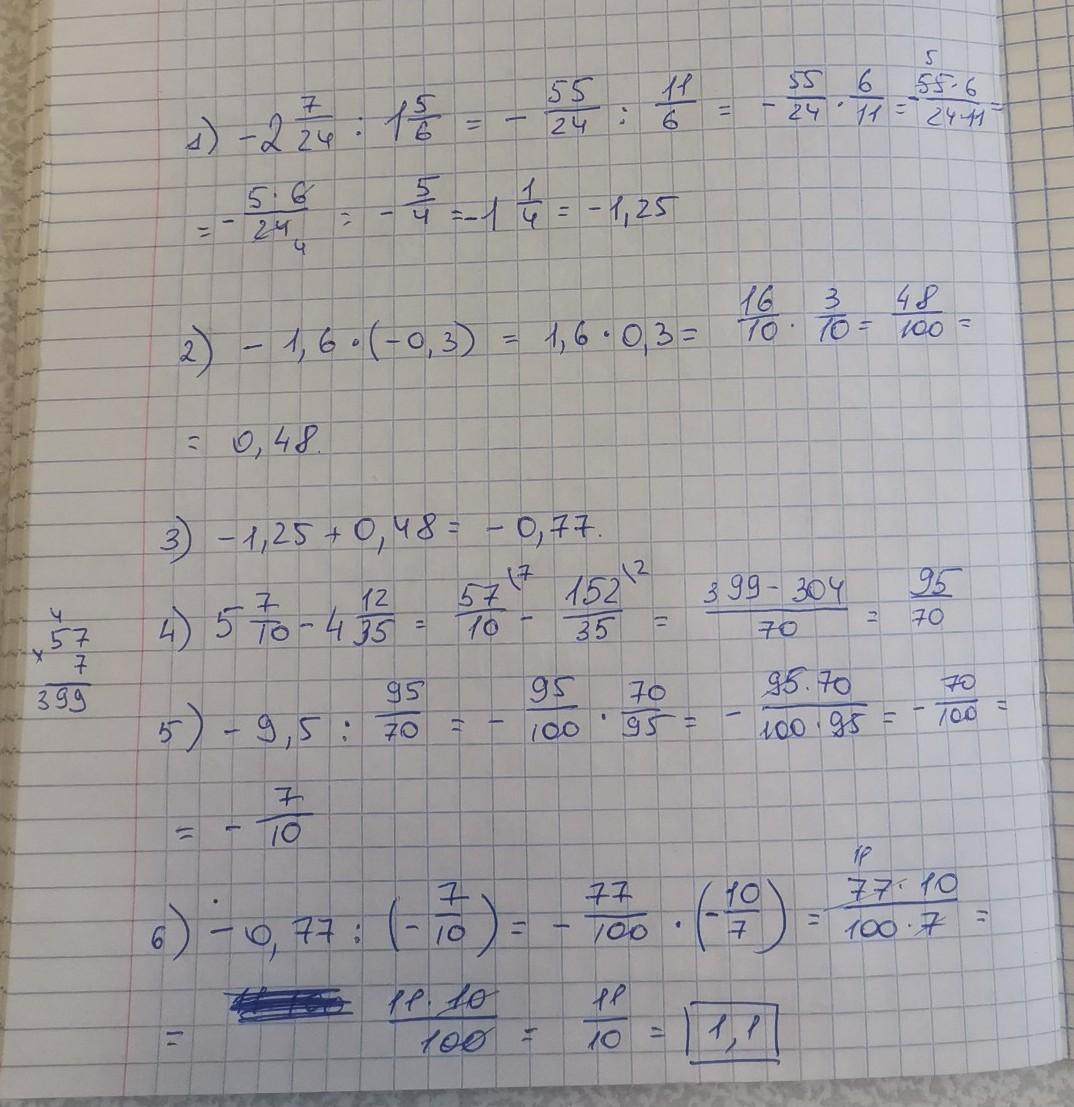 1) -2 7/24 : 1 5/6 = - 55/24 : 11/6 = - 55/24 · 6/11 = - 55·6/24·11 =
5
= - 5·6/24 = - 5/4 = -1 1/4 = -1,25
4
2) - 1,6·(-0,3) = 1,6·0,3 = 16/10 · 3/10 = 48/100 =
= 0,48.
3) -1,25 + 0,48 = - 0,77.
4) 5 7/10 - 4 12/35 = 57/10 \7 - 152/35 \2 = 399 - 304/70 = 95/70
4
57
× 7
399
5) - 9,5 : 95/70 = - 95/100 · 70/95 = - 95·70/100·95 = - 70/100 =
= - 7/10
6) - 0,77 : (- 7/10) = - 77/100 · (- 10/7) = 77·10/100·7 =
11
= 11·10/100 = 11/10 = 1,1